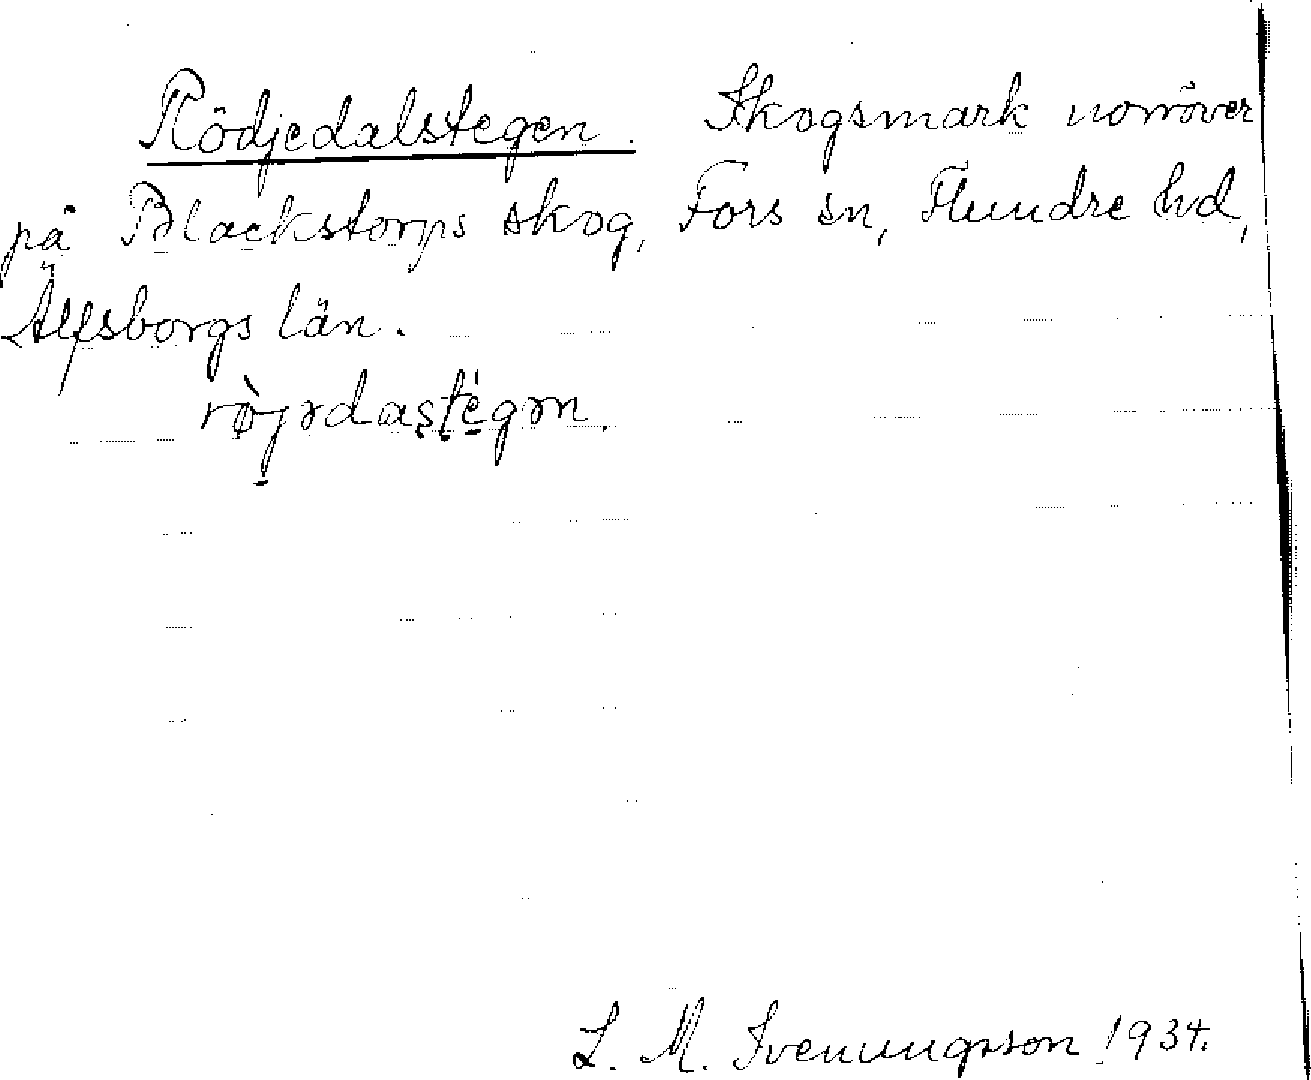 Rödjedalstegen. Skogsmark norröver
på Blackstorps skog, Fors sn, Flundre hd,
Älfsborgs län.
rø̀jədastégən.
L. M. Svenungsson 1934.